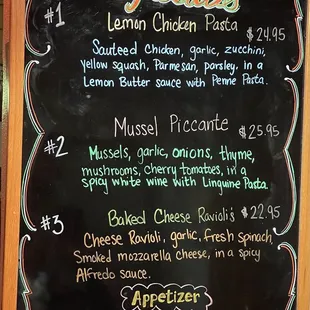 #1
Lemon Chicken Pasta $24.95
Sauteed Chicken, garlic, zucchini,
Yellow squash, Parmesan, parsley. In a
Lemon Butter sauce with Penne Pasta.
Mussel Piccante $25.95
#2
Mussels, garlic, onions, thyme,
mushrooms, cherry tomatoes, in a
spicy white wine with Linguine Pasta.
#3 Baked Cheese Ravioli's $22.95
Cheese Ravioli, garlic, fresh spinach,
Smoked mozzarella cheese, in a spicy
Alfredo sauce.
Appetizer